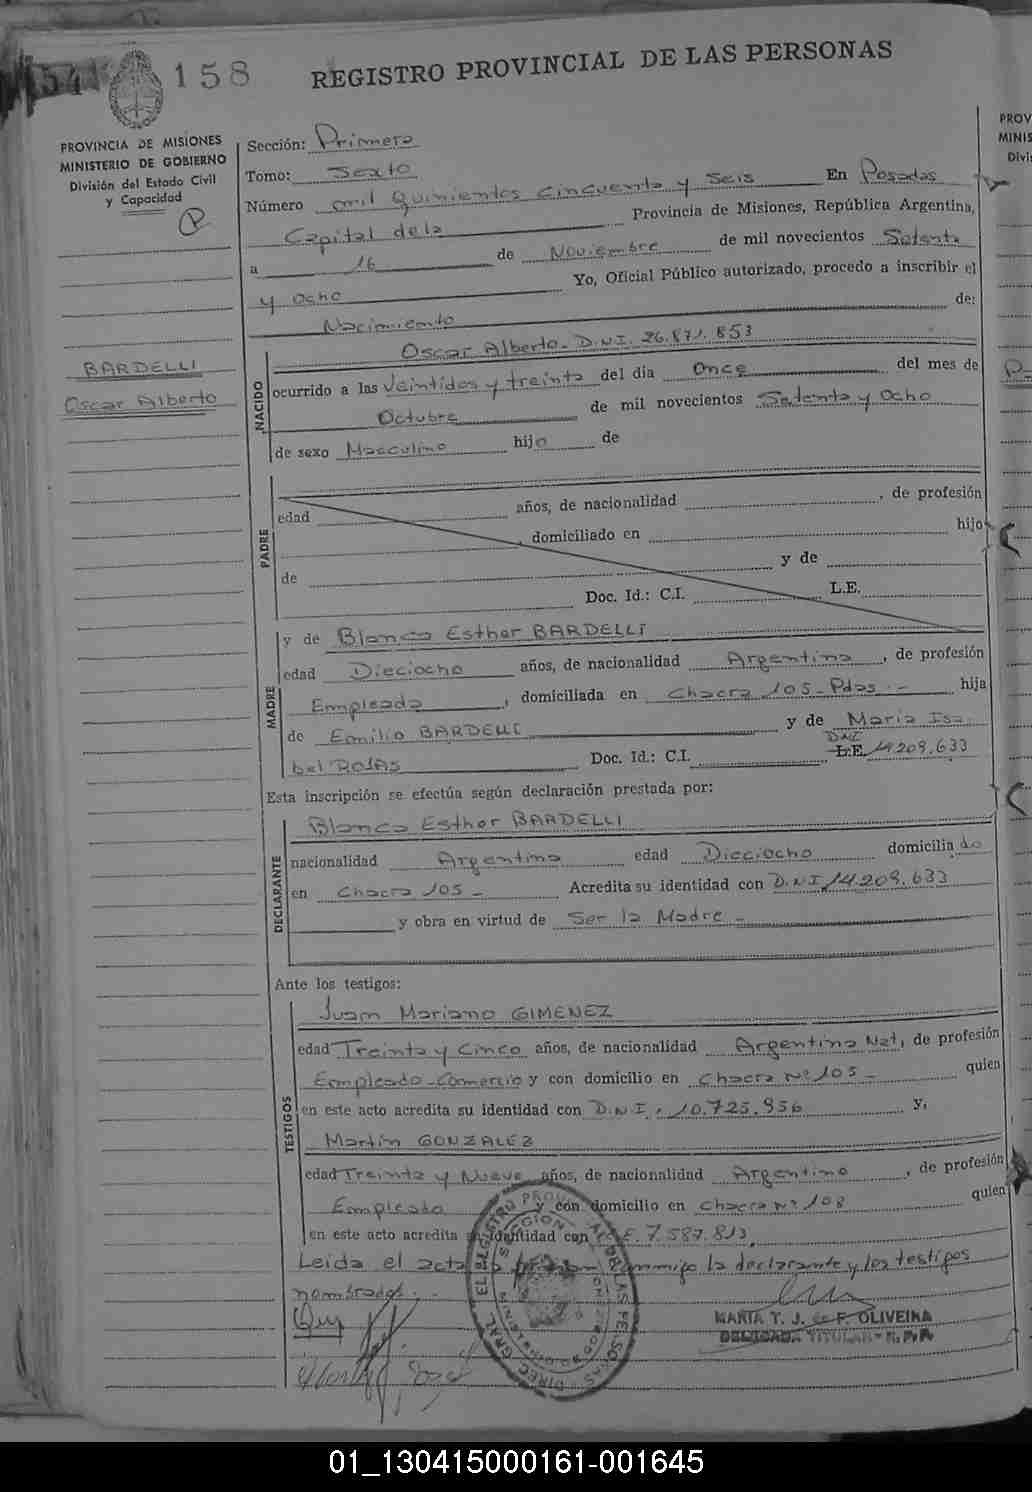 158 REGISTRO PROVINCIAL DE LAS PERSONAS
PROVINCIA DE MISIONES
MINISTERIO DE GOBIERNO
División del Estado Civil
y Capacidad
BARDELLI
Oscar Alberto
Sección: Primera
Tomo: Sexto
Número mil Quinientos cincuenta y seis En Posadas
Capital de la Provincia de Misiones, República Argentina,
a 16 de Noviembre de mil novecientos Setenta
y Ocho Yo, Oficial Público autorizado, procedo a inscribir el
Nacimiento de:
NACIDO
Oscar Alberto - D.N.I. 26.871.853
ocurrido a las Veintidos y treinta del día Once del mes de
Octubre de mil novecientos Setenta y Ocho
de sexo Masculino hijo de
PADRE
edad años, de nacionalidad , de profesión
, domiciliado en hijo
de y de
Doc. Id.: C.I. L.E.
MADRE
y de Blanca Esther BARDELLI
edad Dieciocho años, de nacionalidad Argentina , de profesión
Empleada , domiciliada en Chacra 105 - Pdas. - hija
de Emilio BARDELLI y de María Isa
bel ROJAS Doc. Id.: C.I. L.E. DNI 14.209.633
Esta inscripción se efectúa según declaración prestada por:
DECLARANTE
Blanca Esther BARDELLI
nacionalidad Argentina edad Dieciocho domicilia do
en Chacra 105 - Acredita su identidad con D.N.I 14.209.633
y obra en virtud de Ser la Madre -
Ante los testigos:
TESTIGOS
Juan Mariano GIMENEZ
edad Treinta y Cinco años, de nacionalidad Argentina Nat, de profesión
Empleado - Comercio y con domicilio en Chacra Nº 105 - quien
en este acto acredita su identidad con D.N.I. 10.725.956 y,
Martín GONZALEZ
edad Treinta y Nueve años, de nacionalidad Argentino , de profesión
Empleado y con domicilio en Chacra Nº 108 quien
en este acto acredita identidad con L.E. 7.587.813
Leida el acta la firman conmigo la declarante y los testigos
nombrados.
MARIA T. J. de F. OLIVEIRA
DELEGADA TITULAR - R.P.P.
01_130415000161-001645